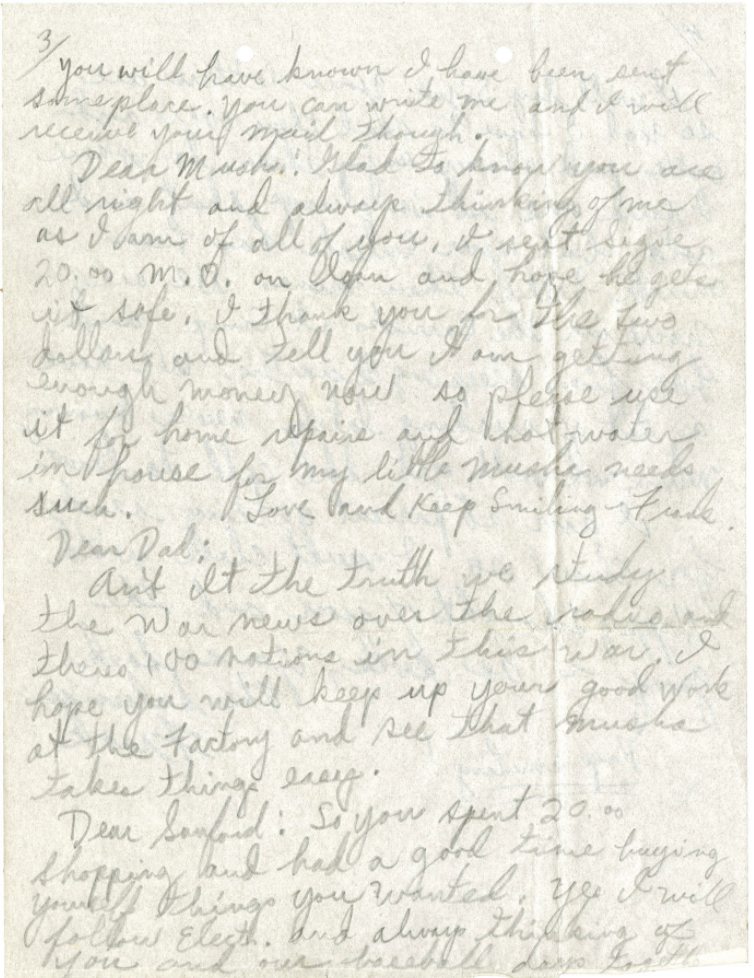 3/
you will have known I have been sent
someplace. You can write me and I will
receive your mail though.
Dear Musha! Glad to know you are
all right and always thinking of me
as I am of all of you. I sent
20.00 M.O. on loan and hope he gets
it safe. I thank you for the two
dollars and tell you I am getting
enough money now so please use
it for home repairs and hot water
in house for my little Musha needs
such. Love and Keep Smiling - Frank.
Dear Dad:
Ain't it the truth we study
the War news over the radio and
theres 100 nations in this war. I
hope you will keep up your good work
at the Factory and see that Musha
takes things easy.
Dear Sanford: So you spent 20.00
shopping and had a good time buying
yourself things you wanted. Yes I will
follow Elect. and always thinking of
you and our baseball days